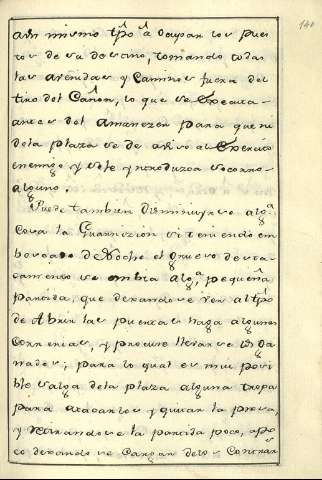 asi mismo tpō â ocupar los pues
tos de su destino, tomando todas
las avenidas y Caminos fuera del
tiro del Cañon, lo que se Executa
antes del amanezer para que ni
dela plaza se de aviso al Exercito
enemigo y este yntroduzca socorro
alguno.
Puede tambien disminuyrse alg.ª
cosa la Guarnizion si teniendo em
boscado de Noche el grueso desta
camento se embia alg.ª pequeña
partida, que dexandose ver al tpō
de Abrir las puertas haga algunas
Correrias, y procure llevarse los Ga
nados; para lo qual es mui posi
ble salga dela plaza alguna tropa
para atacarlos y quitar la presa,
y retirandose la partida poco, apo
co dexandose Cargar delos Contrar